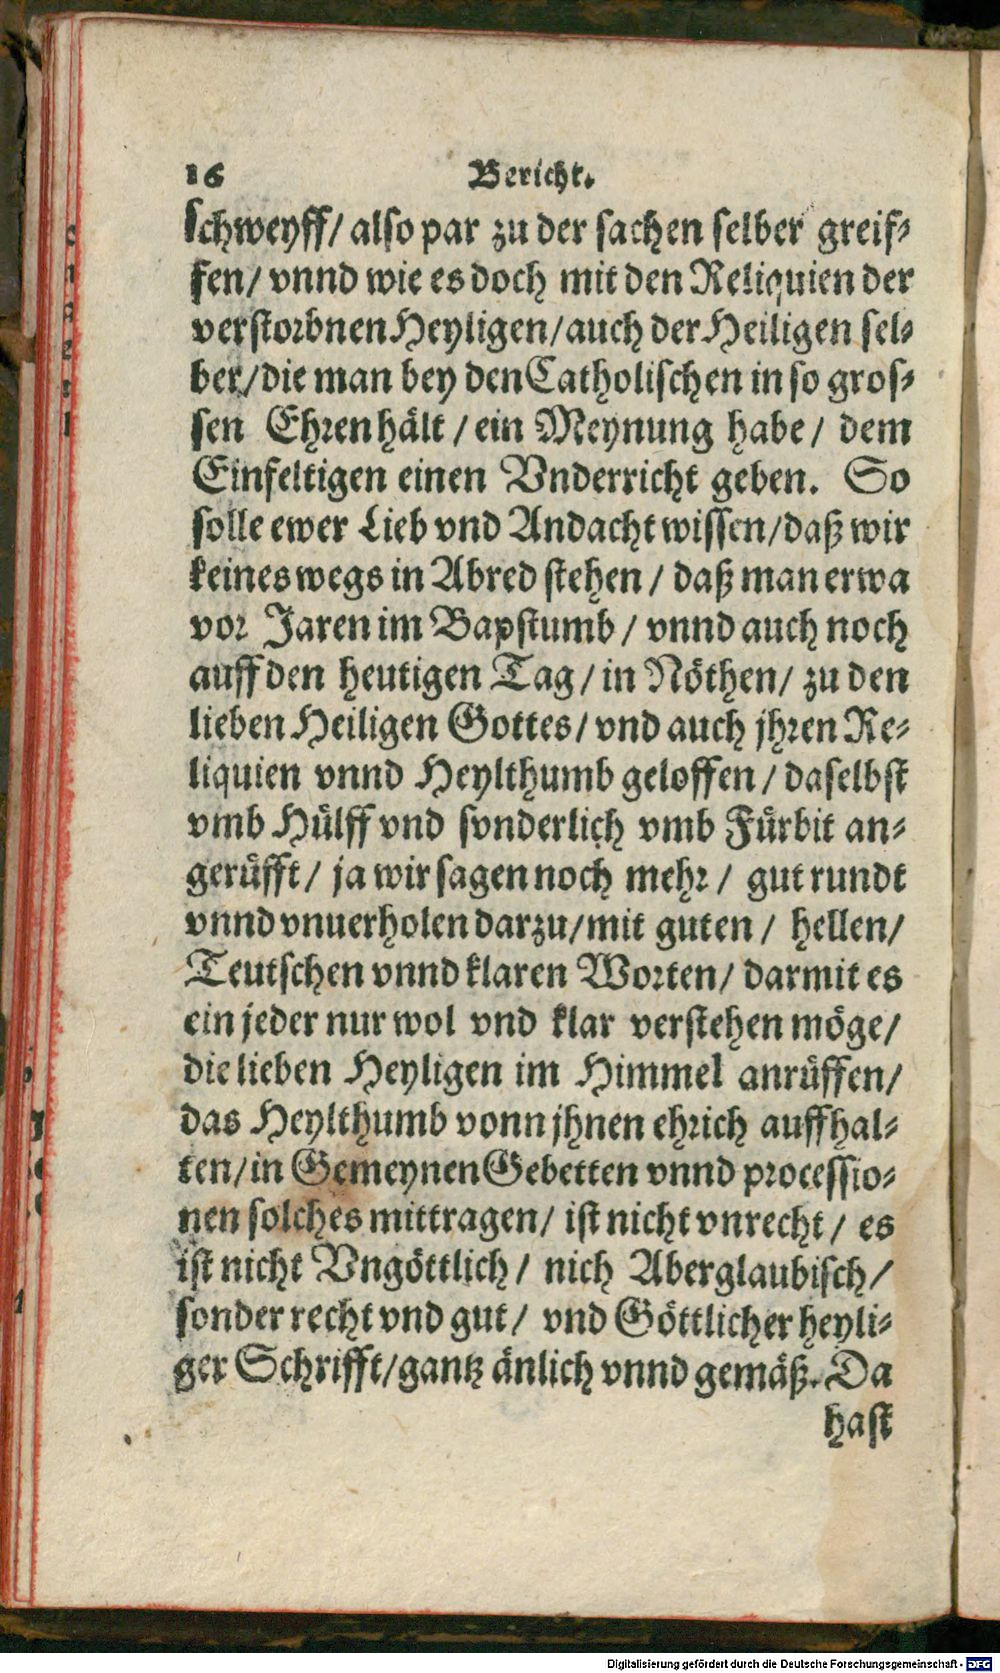 16 Bericht.
schweyff/ also par zu der sachen selber greif-
fen/ vnnd wie es doch mit den Reliquien der
verstorbnen Heyligen/ auch der Heiligen sel-
ber/ die man bey den Catholischen in so gros-
sen Ehren hält / ein Meynung habe/ dem
Einfeltigen einen Vnderricht geben. So
solle ewer Lieb vnd Andacht wissen/ daß wir
keines wegs in Abred stehen / daß man erwa
vor Jaren im Bapstumb / vnnd auch noch
auff den heutigen Tag/ in Nöthen/ zu den
lieben Heiligen Gottes/ vnd auch jhren Re-
liquien vnnd Heylthumb geloffen / daselbst
vmb Hülff vnd svnderlich vmb Fürbit an-
gerüfft/ ja wir sagen noch mehr / gut rundt
vnnd vnuerholen darzu/ mit guten / hellen/
Teutschen vnnd klaren Worten/ darmit es
ein jeder nur wol vnd klar verstehen möge/
die lieben Heyligen im Himmel anrüffen/
das Heylthumb vonn jhnen ehrich auffhal-
ten/ in Gemeynen Gebetten vnnd processio-
nen solches mittragen/ ist nicht vnrecht/ es
ist nicht Vngöttlich/ nich Aberglaubisch/
sonder recht vnd gut/ vnd Göttlicher heyli-
ger Schrifft/ gantz änlich vnnd gemäß. Da
hast
Digitalisierung gefördert durch die Deutsche Forschungsgemeinschaft - DFG